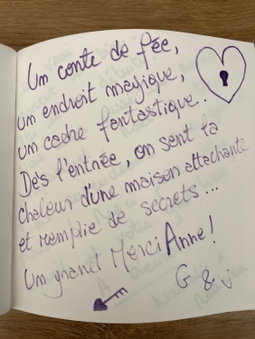 Un conte de fée,
un endroit magique,
un cadre fantastique.
Dès l'entrée, on sent la
chaleur d'une maison attachante
et remplie de secrets...
Un grand Merci Anne!
G & V